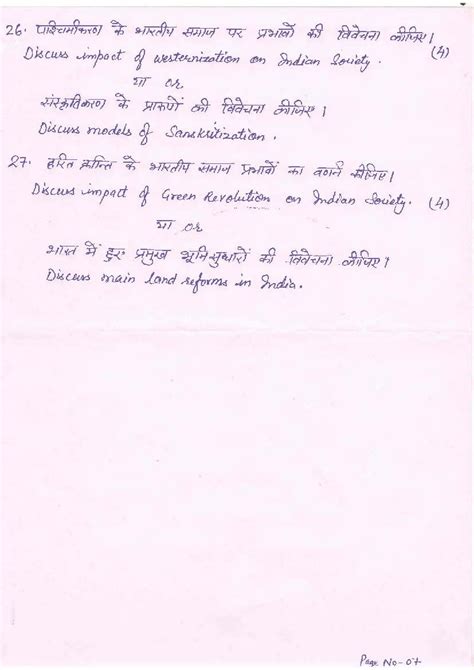 26. पाश्चिमीकरण के भारतीय समाज पर प्रभावों की विवेचना कीजिए।
Discuss impact of westernization on Indian Society. (4)
या or
संस्कृतिकरण के प्रारूपों की विवेचना कीजिए।
Discuss models of Sanskritization.
27. हरित क्रान्ति के भारतीय समाज प्रभावों का वर्णन कीजिए।
Discuss impact of Green Revolution on Indian Society. (4)
या or
भारत में हुए प्रमुख भूमिसुधारों की विवेचना कीजिए।
Discuss main land reforms in India.
Page No-07